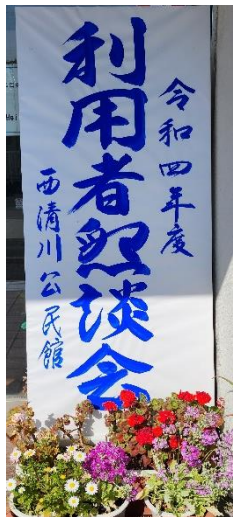 令和四年度
利用者懇談会
西清川公民館